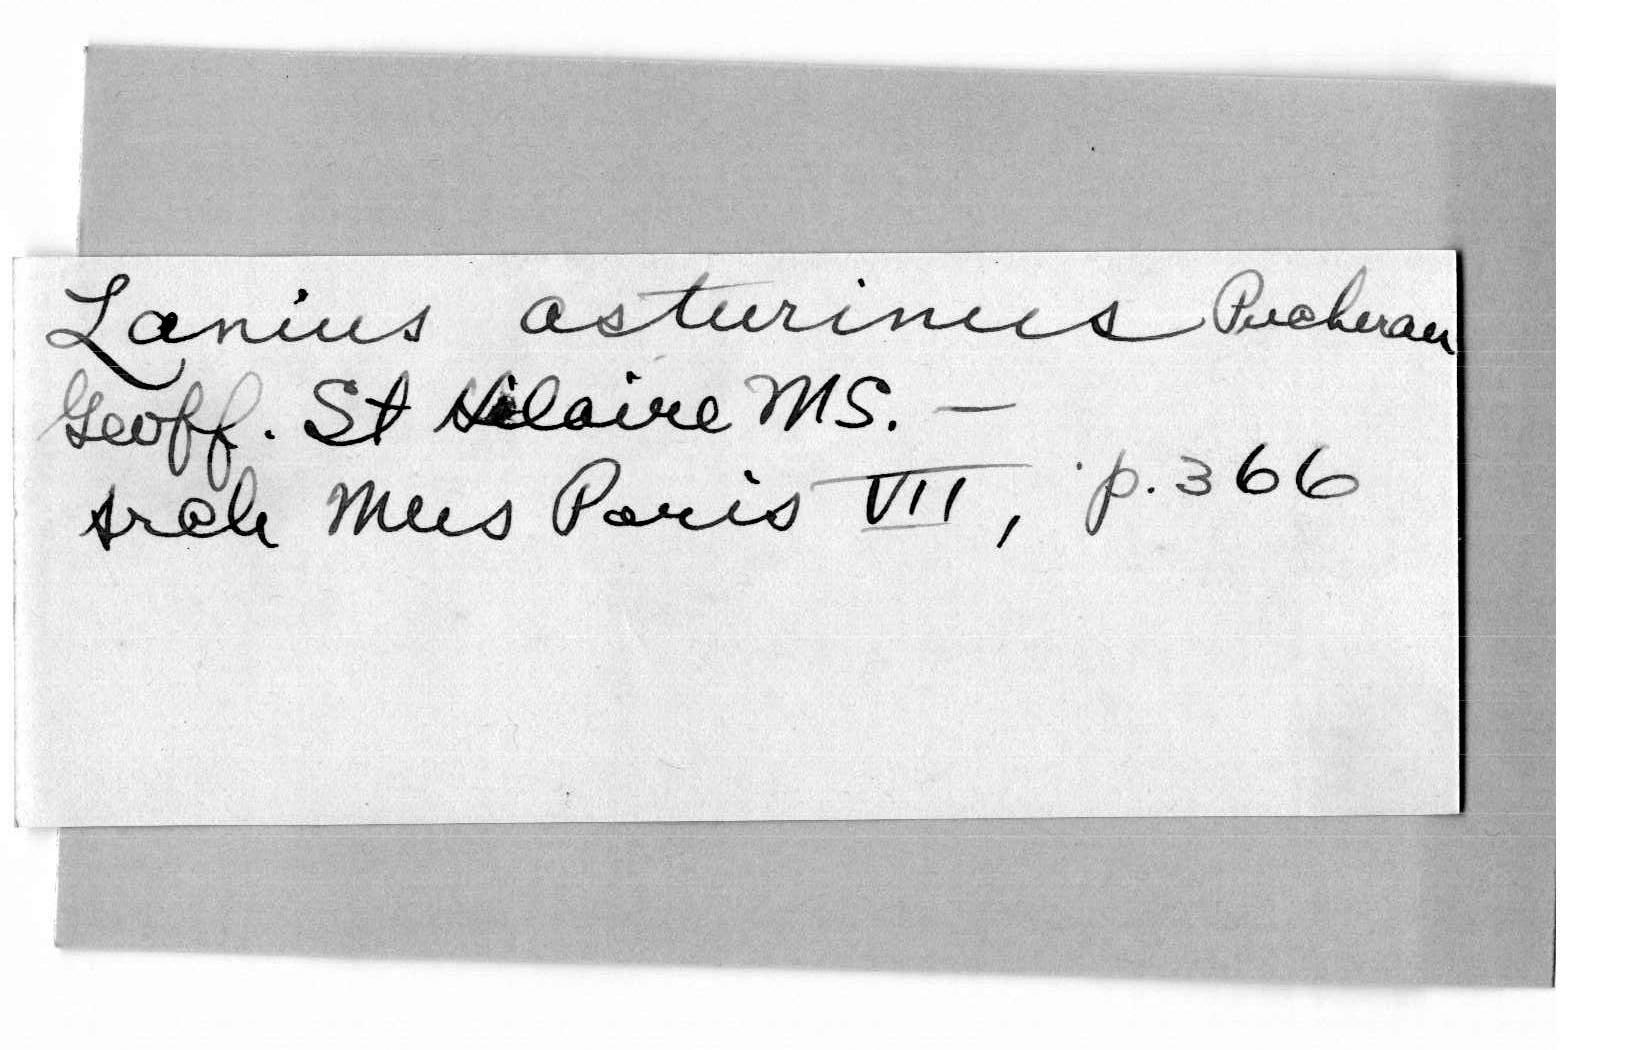 Lanius asturinus Pucheran
Geoff. St Hilaire MS. —
Arch Mus Paris VII, p. 366